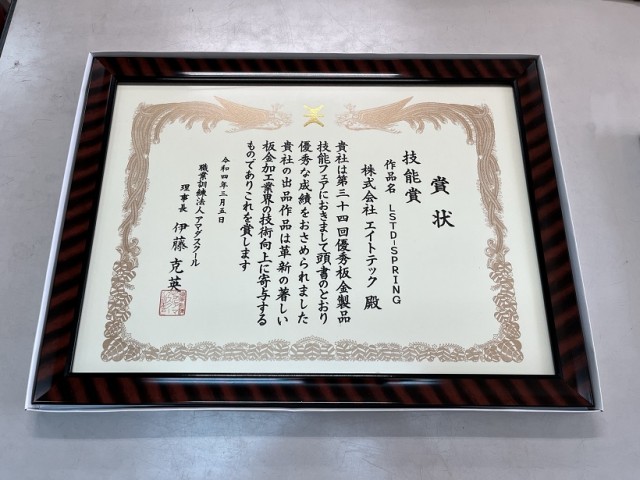 賞状
技能賞
作品名 LSTD-SPRING
株式会社 エイトテック 殿
貴社は第三十四回優秀板金製品
技能フェアにおきまして頭書のとおり
優秀な成績をおさめられました
貴社の出品作品は革新の著しい
板金加工業界の技術向上に寄与する
ものでありこれを賞します
令和四年三月五日
職業訓練法人アマダスクール
理事長 伊藤克英